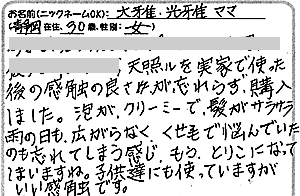 お名前(ニックネームOK): 大雅・光雅ママ
(静岡 在住、30歳、性別: 女)
、天照ルを実家で使った
後の感触の良さが、忘れらず、購入
しました。泡が、クリーミーで、髪がサラサラ
雨の日も、広がらなく くせ毛で悩んでいた
のも忘れてしまう感じ、もう、とりこになって
しまいますね。子供達にも使っていますが
いい感触です。